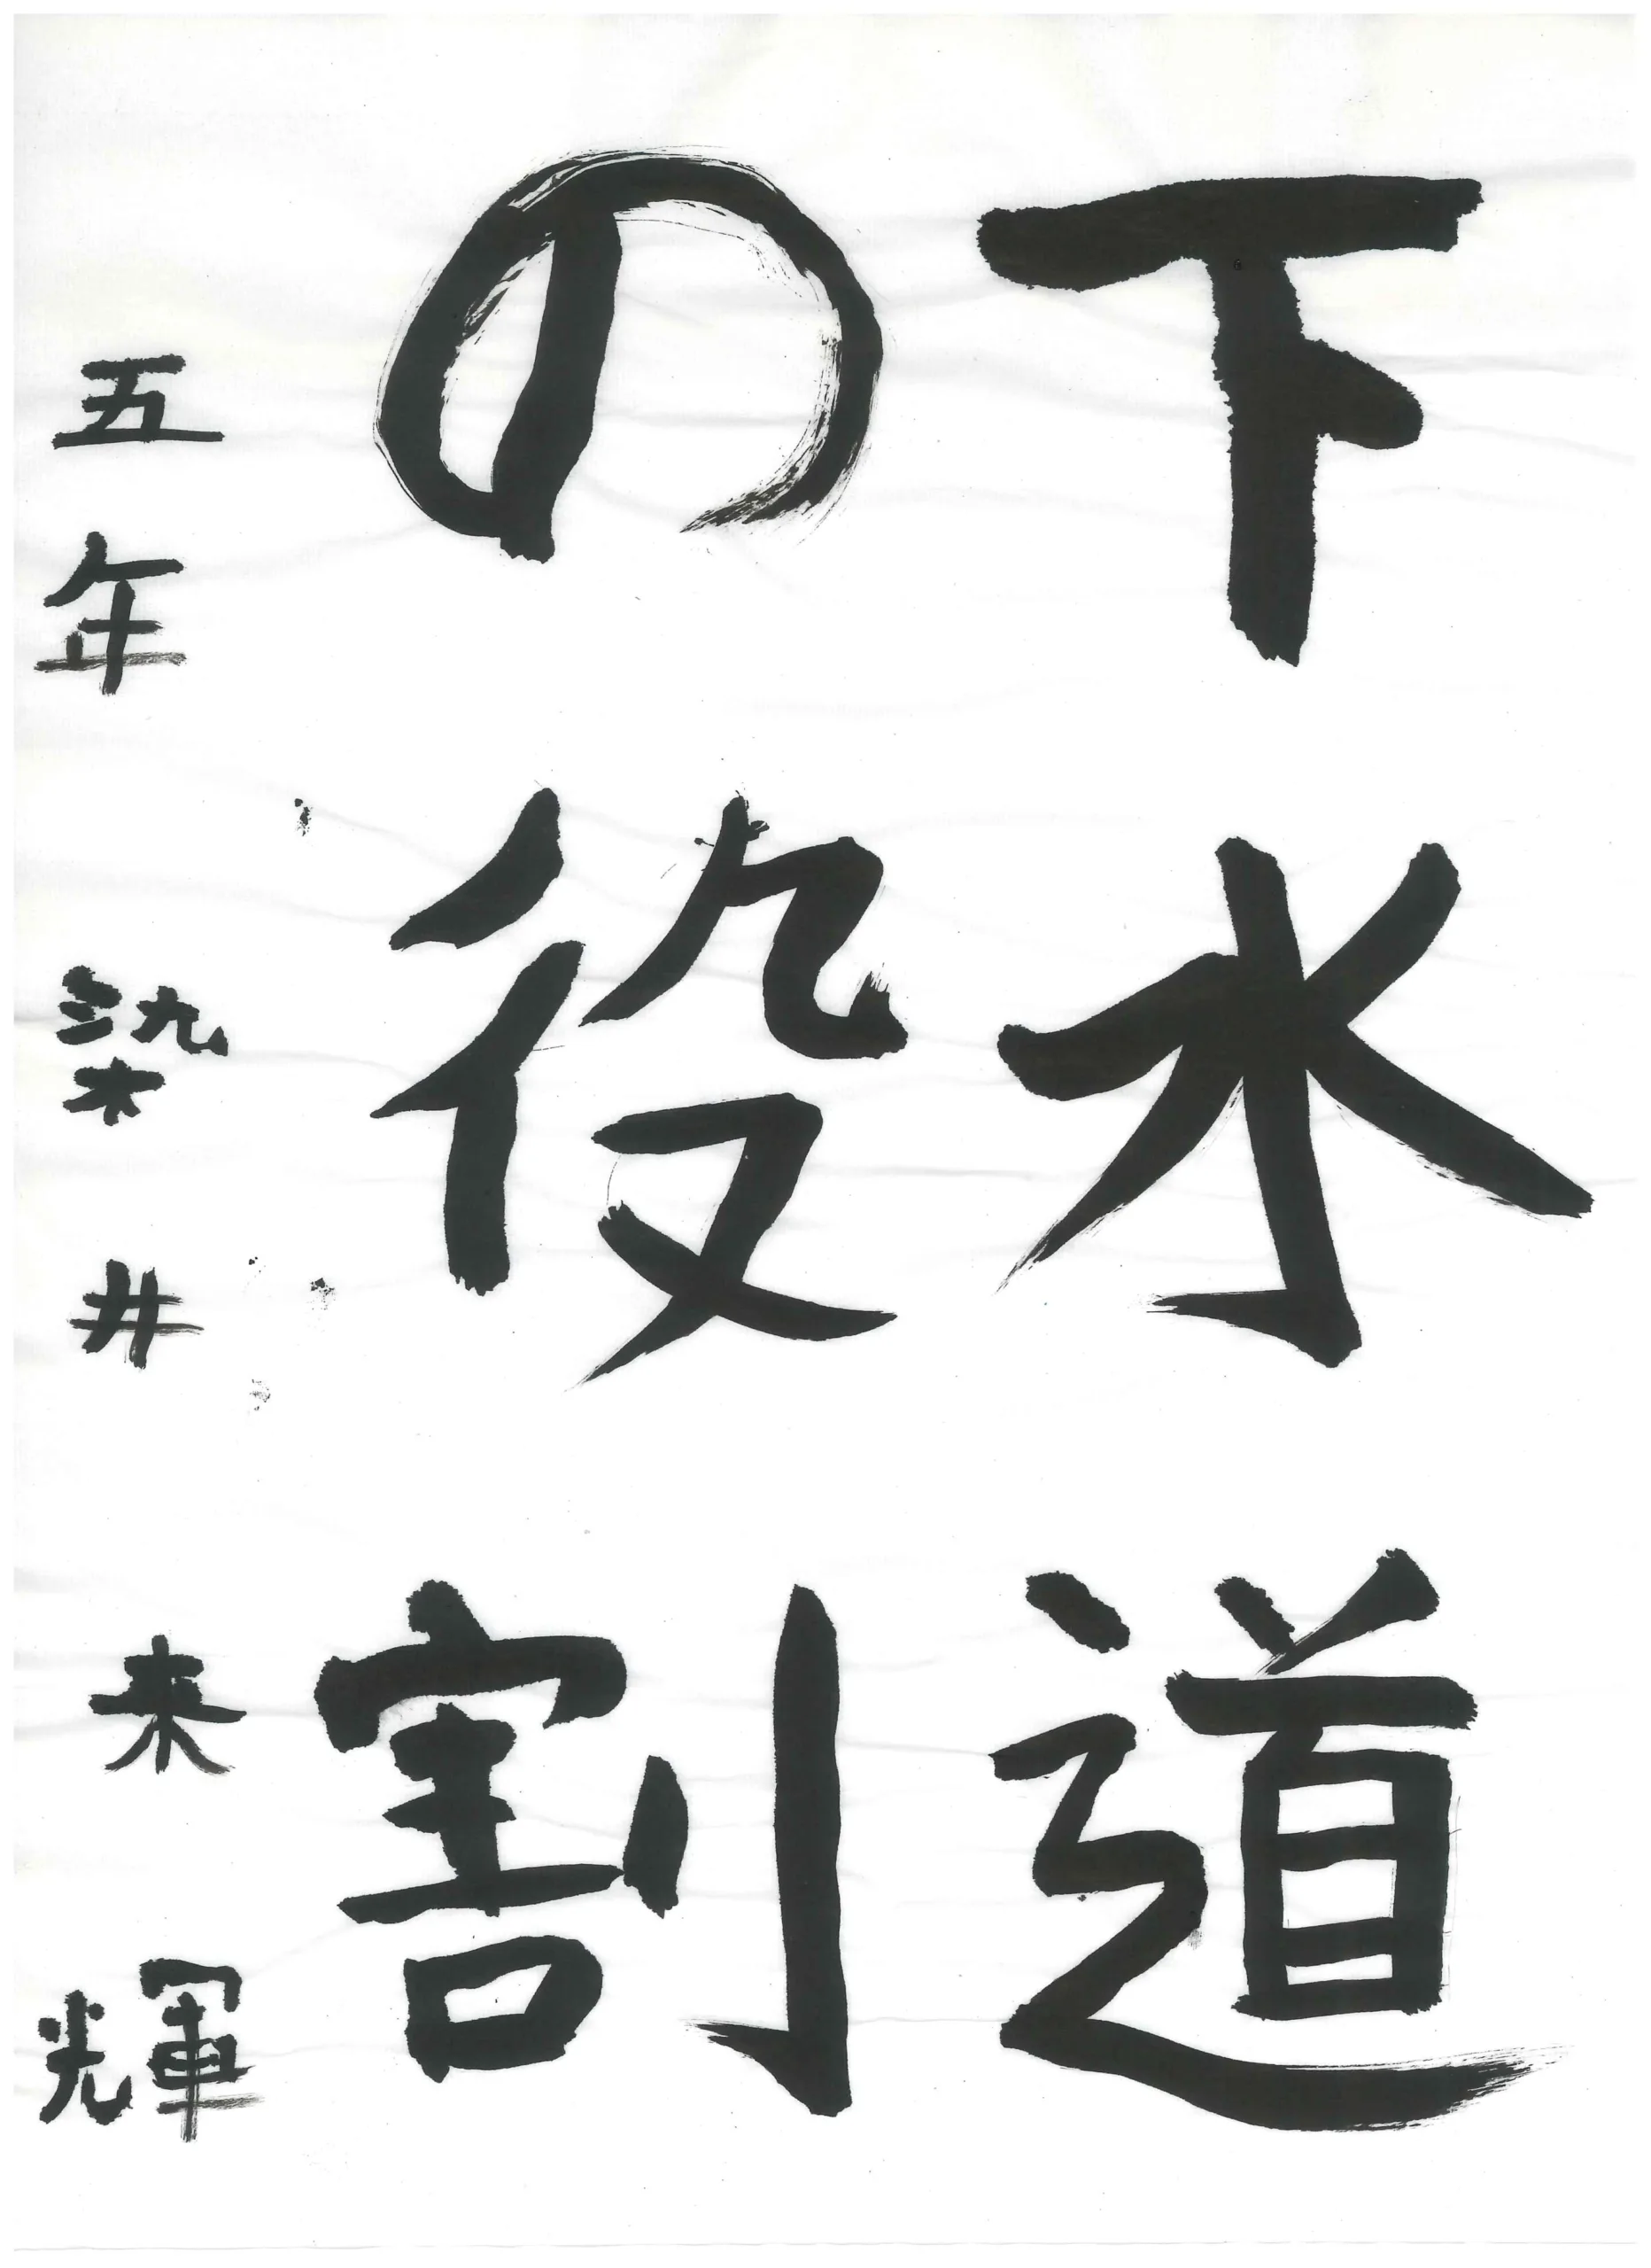 下水道
の役割
五年 染井来輝